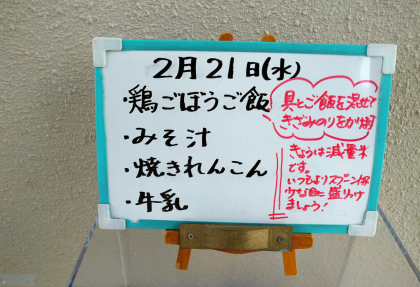 2月21日(水)
・鶏ごぼうご飯
・みそ汁
・焼きれんこん
・牛乳
具とご飯を混ぜて
きざみのりをかけ
きょうは減量米
です。
いつもよりスプーン1杯
少な目に盛りつけ
ましょう!